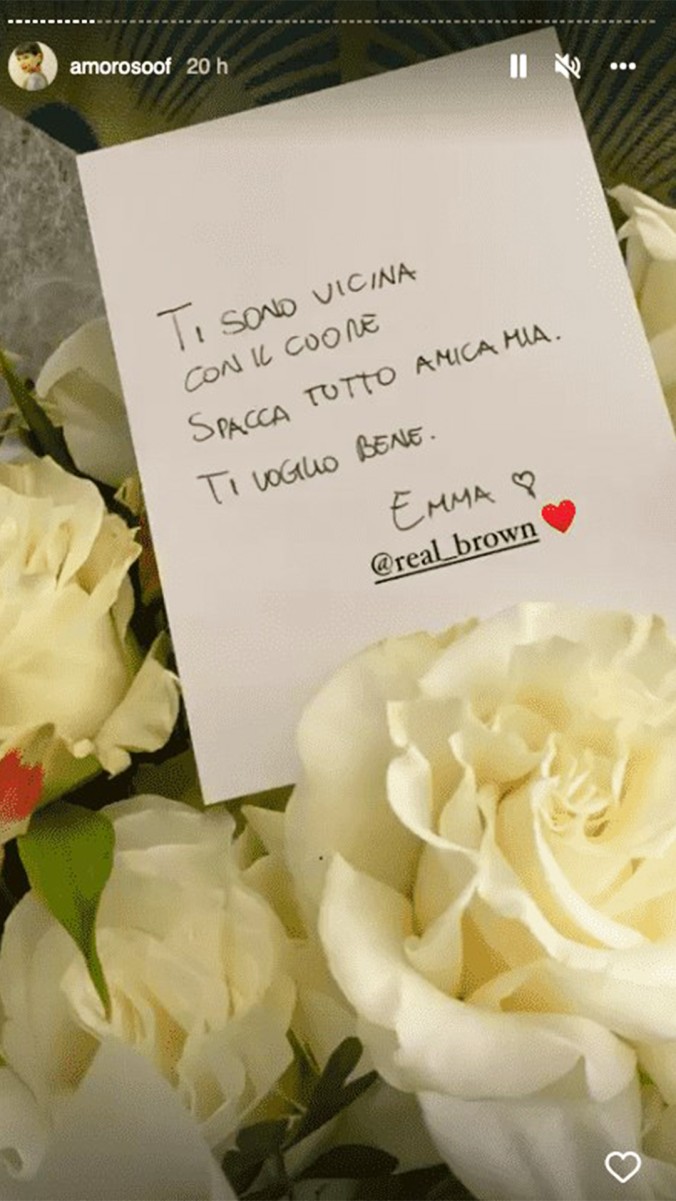 amorosoof 20 h
TI SONO VICINA
CON IL CUORE
SPACCA TUTTO AMICA MIA.
TI VOGLIO BENE.
EMMA
@real_brown